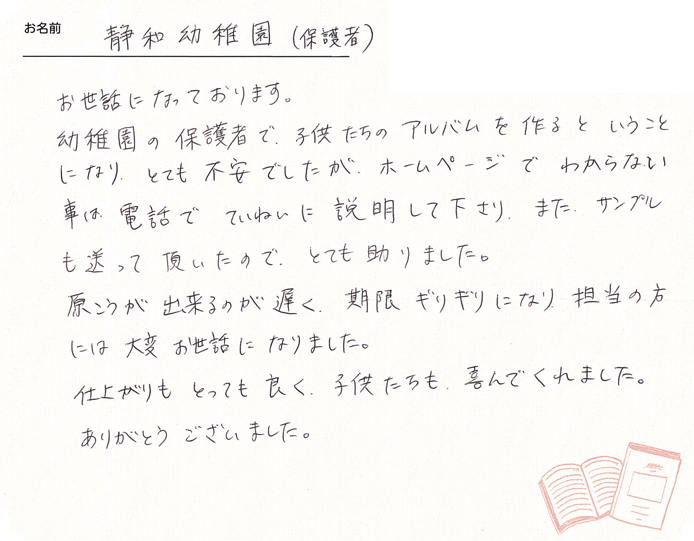 お名前 静和幼稚園(保護者)
お世話になっております。
幼稚園の保護者で、子供たちのアルバムを作るということ
になり、とても不安でしたが、ホームページでわからない
事は電話でていねいに説明して下さり、また、サンプル
も送って頂いたので、とても助りました。
原こうが出来るのが遅く、期限ギリギリになり、担当の方
には大変お世話になりました。
仕上がりもとっても良く、子供たちも、喜んでくれました。
ありがとうございました。